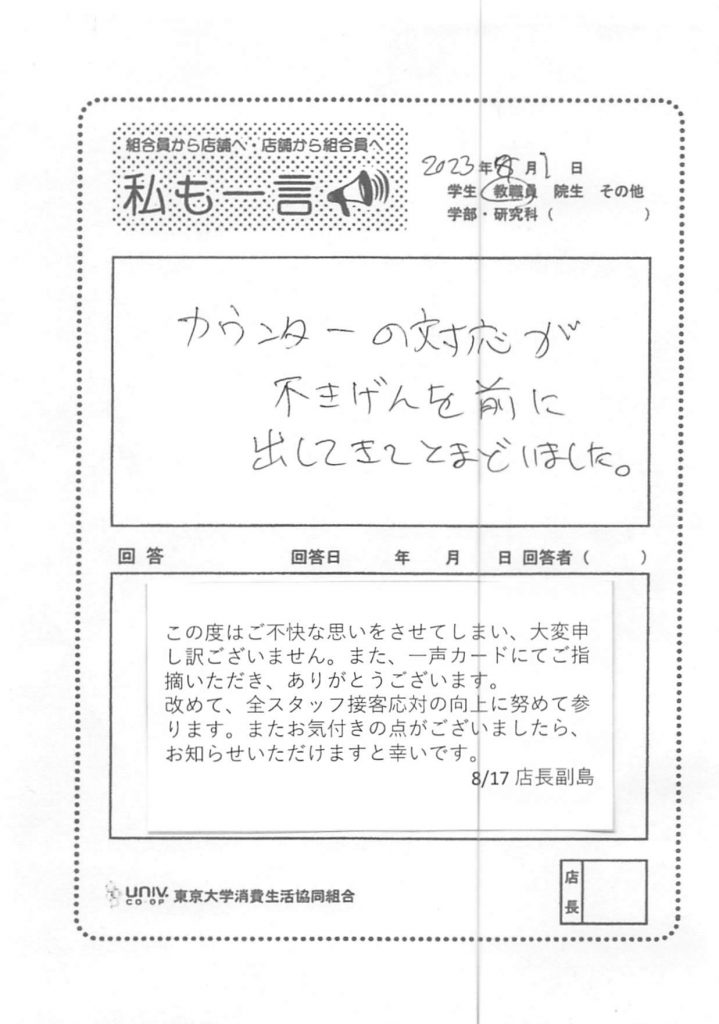 組合員から店舗へ・店舗から組合員へ
私も一言
2023年8月1日
学生 教職員 院生 その他
学部・研究科( )
カウンターの対応が
不きげんを前に
出してきてとまどいました。
回答 回答日 年 月 日 回答者( )
この度はご不快な思いをさせてしまい、大変申
し訳ございません。また、一声カードにてご指
摘いただき、ありがとうございます。
改めて、全スタッフ接客応対の向上に努めて参
ります。またお気付きの点がございましたら、
お知らせいただけますと幸いです。
8/17 店長副島
UNIV. CO-OP 東京大学消費生活協同組合
店長